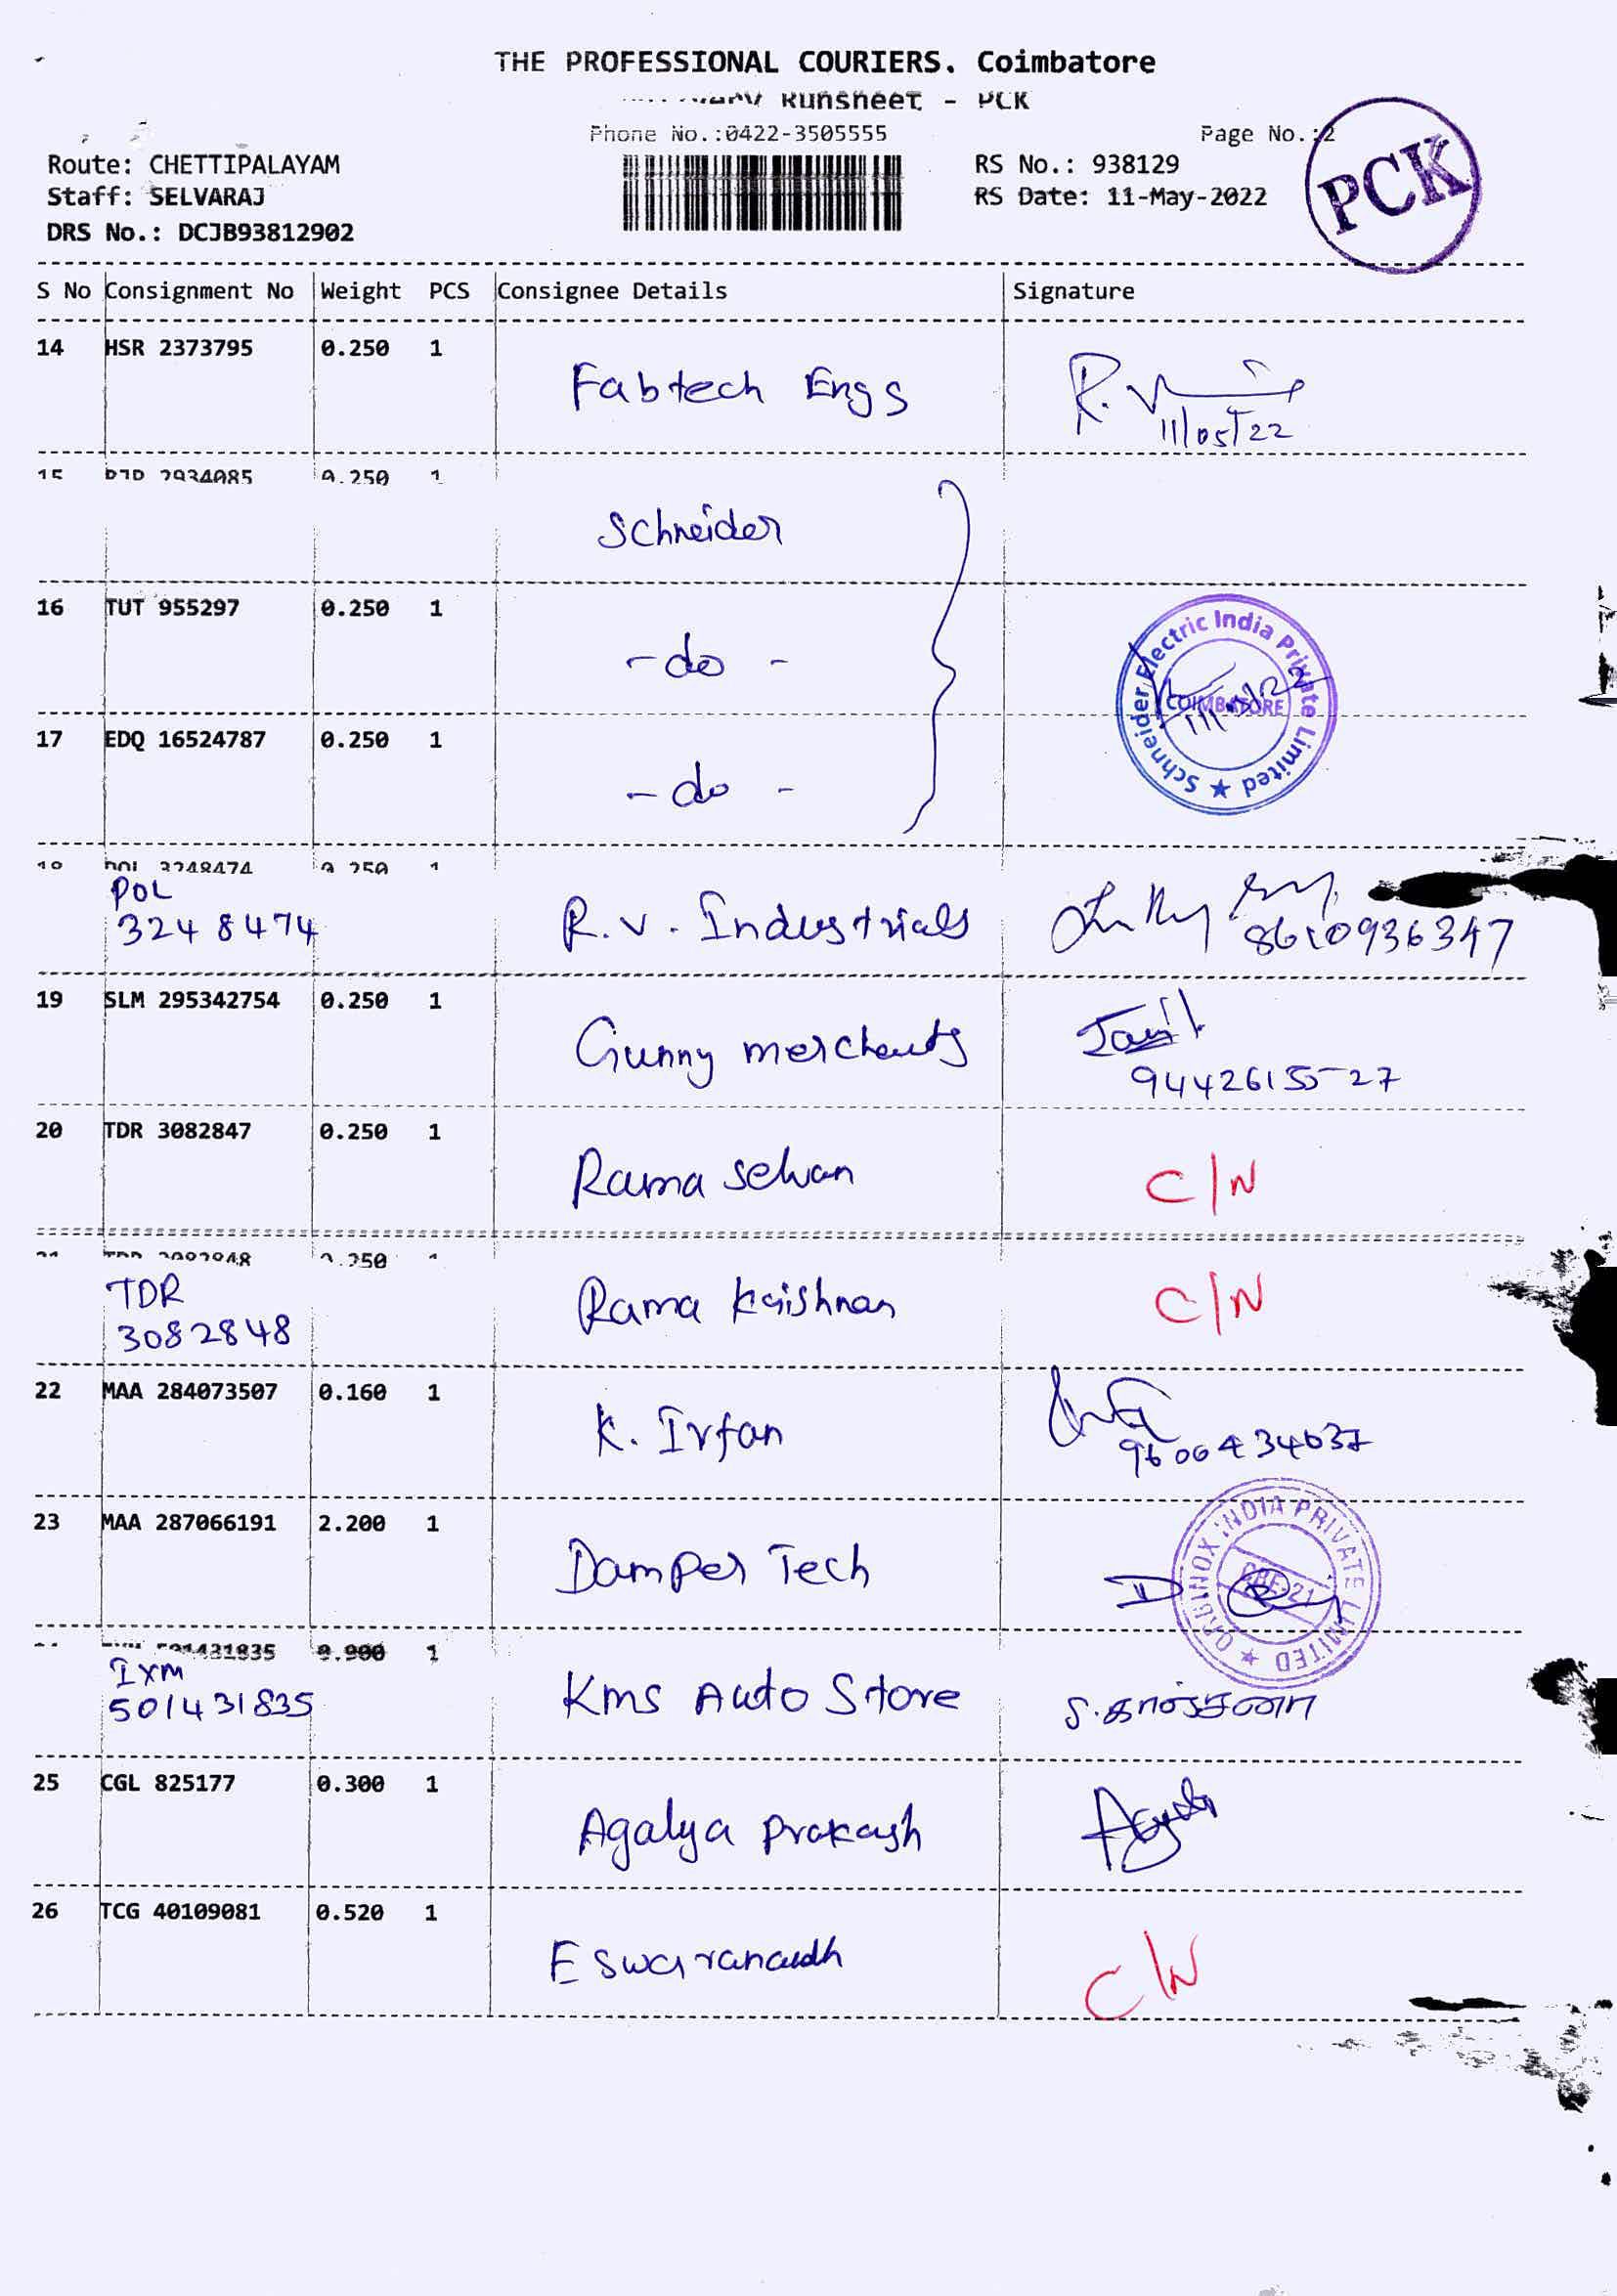 THE PROFESSIONAL COURIERS. Coimbatore
Runsheet - PCK
Phone No.:0422-3505555
Page No.:2
PCK
Route: CHETTIPALAYAM
RS No.: 938129
Staff: SELVARAJ
RS Date: 11-May-2022
DRS No.: DCJB93812902
S No Consignment No Weight PCS Consignee Details Signature
14 HSR 2373795 0.250 1
Fabtech Engs
11/05/22
15 2934085 0.250 1
Schneider
16 TUT 955297 0.250 1
-do -
Schneider Electric India Private Limited ★
COIMBATORE
17 EDQ 16524787 0.250 1
-do -
18 POL 3248474 0.250 1
POL
3248474
R.V. Industrials
8610936347
19 SLM 295342754 0.250 1
Gunny merchants
9442615527
20 TDR 3082847 0.250 1
Rama Selvan
C/N
21 TDR 3082848 0.250 1
TDR
3082848
Rama Krishnan
C/N
22 MAA 284073507 0.160 1
K. Irfan
23 MAA 287066191 2.200 1
Damper Tech
ORBINOX INDIA PRIVATE LIMITED ★
CBE-21
501431835 0.900 1
IXM
501431835
Kms Auto Store
25 CGL 825177 0.300 1
Agalya Prakash
26 TCG 40109081 0.520 1
Eswaranandh
C/N